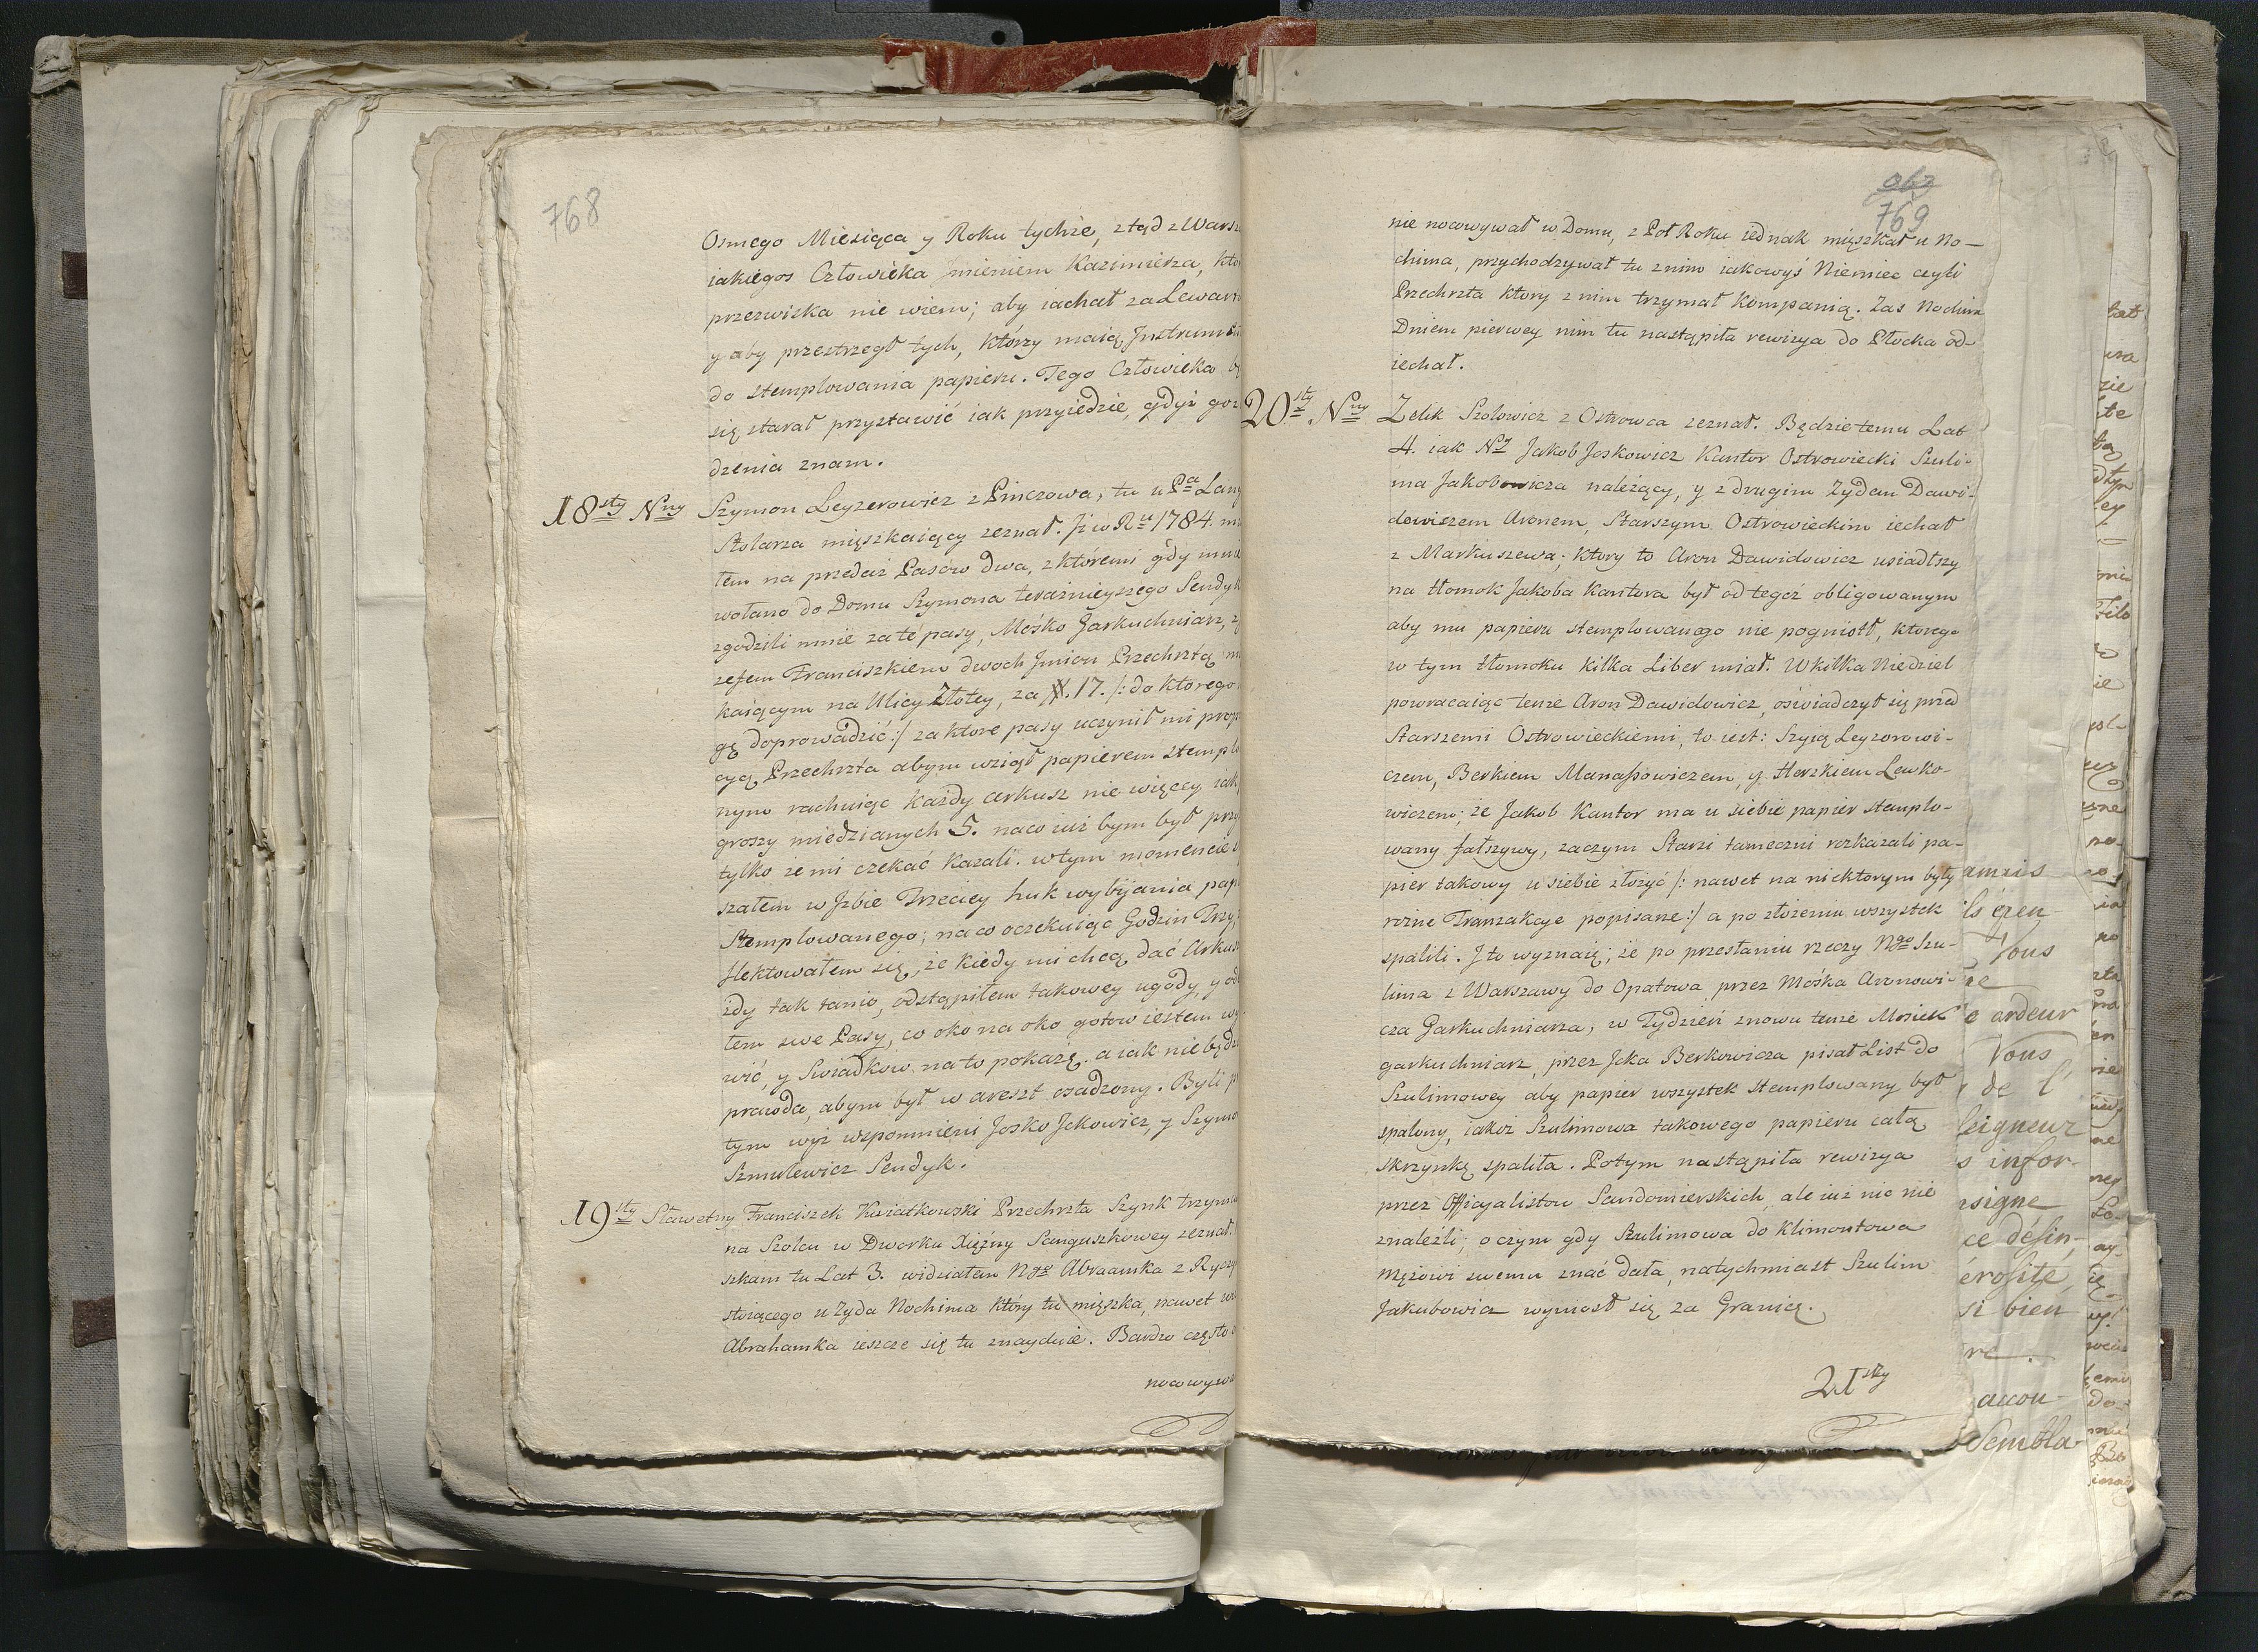 768
Osmego Miesiąca y Roku tychże, ztąd z Wars
iakiegos Człowieka Jmieniem Kazimierza, kto
przezwiska nie wiem; aby iachał za Lewar
y aby przestrzegł tych, którzy maią Jnstrum
do stemplowania papieru. Tego Człowieka bę
się starał przystawić iak przyiedzie, gdyż go z
dzenia znam.
18sty Nny Szymon Leyzerowicz z Pinczowa, tu u Pa Lan
Stolarza mięszkaiący zeznał. Jż w Ru 1784. m
tem na przedaż Pasow dwa, z któremi gdy mnie
wołano do Domu Szymona teraźnieyszego Sendyk
zgodzili mnie za te pasy, Mośko Garkuchniarz, z
zefem Franciszkiem dwoch Jmion Przechrztą m
kaiącym na Ulicy Złotey, za #. 17. /: do ktorego
gę doprowadzić :/ za ktore pasy uczynił mi prop
cyą Przechrzta abym wziął papierem stemplo
nym rachuiąc każdy arkusz nie więcey iak
groszy miedzianych 5. na co iuż bym był prz
tylko że mi czekać kazali. w tym momencie
szałem w Jzbie Trzeciey huk wybijania pap
Stemplowanego; na co oczekuiąc Godzin Trzy,
flektowałem się, że kiedy mi chcą dać Arkus
żdy tak tanio, odstąpiłem takowey ugody, y od
łem swe Pasy, co oko na oko gotow iestem w
wić, y Swiadkow na to pokażę. a iak nie będz
prawda, abym był w areszt osadzony. Byli p
tym wyż wspomnieni Josko Jckowicz, y Szymo
Szmulewicz Sendyk.
19sty Sławetny Franciszek Kwiatkowski Przechrzta Szynk trzyma
na Szolcu w Dworku Xiężny Sanguszkowey zeznał.
szkam tu Lat 3. widziałem Ngo Abraamka z Ryczy
stoiącego u Zyda Nochima który tu mięszka, nawet
Abrahamka ieszcze się tu znayduie. Bardzo często
nocowyw
obz
769
nie nocowywał w Domu, z Poł Roku iednak mięszkał u No-
chima, przychodzywał tu z nim iakowyś Niemiec czyli
Przechrzta ktory z nim trzymał Kompanią. Zas Nochim
Dniem pierwey nim tu nastąpiła rewizya do Płocka od-
iechał.
20sty Nny Zelik Szolowicz z Ostrowca zeznał. Będzie temu Lat
4. iak Ny Jakob Joskowicz Kantor Ostrowiecki Szuli-
ma Jakobowicza należący, y z drugim Zydem Dawi-
dowiczem Aronem, Starszym Ostrowieckim iechał
z Markuszewa; ktory to Aron Dawidowicz usiadłszy
na tłomok Jakoba Kantora był od tegoż obligowanym
aby mu papieru stemplowanego nie pogniotł, ktorego
w tym tłomoku kilka Liber miał. W kilka Niedziel
powracaiąc tenże Aron Dawidowicz, oświadczył się przed
Starszemi Ostrowieckiemi, to iest: Szyią Leyzorowi-
czem, Berkiem Manaszowiczem, y Herzkiem Lewko-
wiczem; że Jakob Kantor ma u siebie papier stemplo-
wany fałszywy, zaczym Starsi tameczni rozkazali pa-
pier takowy u siebie złożyć /: nawet na niektorym były
rożne Tranzakcye popisane :/ a po złożeniu wszystek
spalili. J to wyznaię; że po przesłaniu rzeczy Ngo Szu-
lima z Warszawy do Opatowa przez Mośka Aronowi-
cza Garkuchniarza, w Tydzień znowu tenże Mosiek
garkuchniarz, przez Jcka Berkowicza pisał List do
Szulimowey aby papier wszystek Stemplowany był
spalony, iakoż Szulimowa takowego papieru całą
skrzynkę spaliła. Potym nastąpiła rewizya
przez Officyalistow Sandomierskich, ale iuż nic nie
znaleźli; o czym gdy Szulimowa do Klimontowa
Mężowi swemu znać dała, natychmiast Szulim
Jakubowicz wyniosł się za Granicę.
21sty
amais
Vous
ardeur
Vous
de l'
seigneur
infor-
signe
ce désin-
érosité,
si bien
accou-
Sembla-